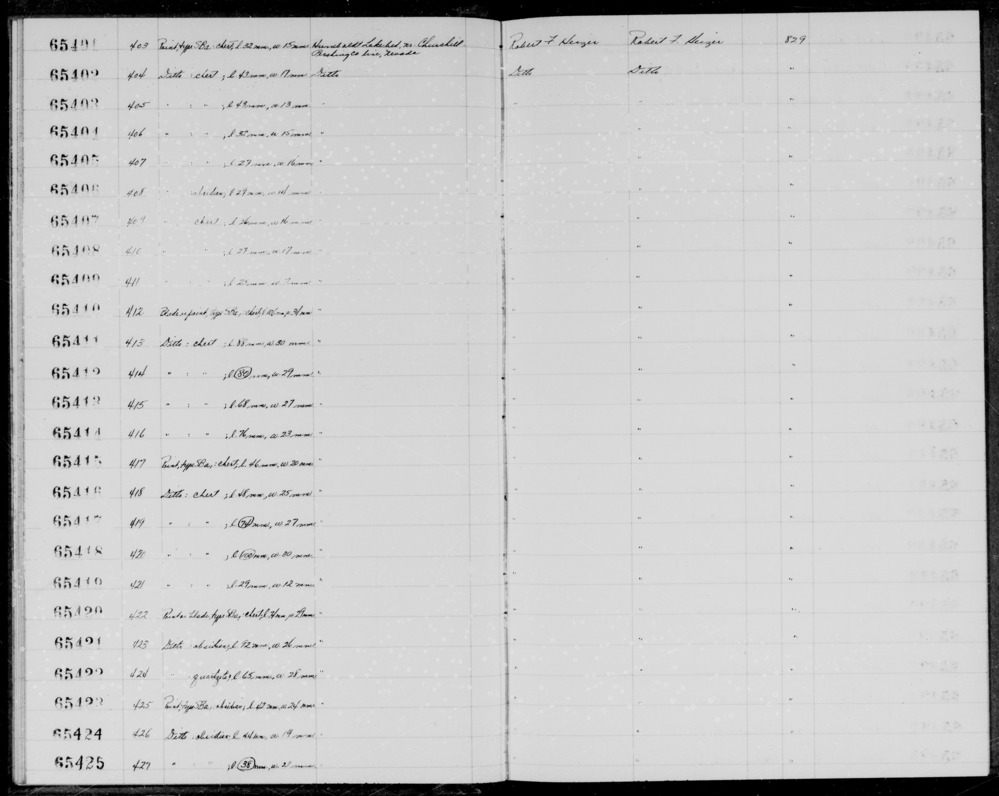 65401 403 Point, type SBa: chert, l. 32 mm, w 15 mm Humboldt Lakebed, nr. Churchill Robert F. Heizer Robert F. Heizer 829
Pershing Co line, Nevada
65402 404 Ditto : chert ; l 43 mm, w 17 mm Ditto Ditto Ditto "
65403 405 " : " ; l 49 mm, w 13 mm " " " "
65404 406 " : " ; l 32 mm, w 15 mm " " " "
65405 407 " : " ; l 27 mm, w 16 mm " " " "
65406 408 " obsidian; l 29 mm, w 14 mm " " " "
65407 409 " chert ; l 26 mm, w 16 mm " " " "
65408 410 " " ; l 27 mm, w 17 mm " " " "
65409 411 " " ; l mm, w mm " " " "
65410 412 Blade or point, type SBa; chert, w 34 mm " " " "
65411 413 Ditto : chert ; l 88 mm, w 30 mm " " " "
65412 414 " : " ; l mm, w 29 mm " " " "
65413 415 " : " ; l. 68 mm, w 27 mm " " " "
65414 416 " : " ; l 76 mm, w 23 mm " " " "
65415 417 Point, type SBa; chert, l. 46 mm, w 20 mm " " " "
65416 418 Ditto : chert ; l 48 mm, w 25 mm " " " "
65417 419 " : " ; l mm, w 27 mm " " " "
65418 420 " : " ; l mm, w 20 mm " " " "
65419 421 " : " ; l 29 mm, w 12 mm " " " "
65420 422 Point or blade, type SBa; chert, " " " "
65421 423 Ditto obsidian; l 72 mm, w 26 mm " " " "
65422 424 " quartzite; l 65 mm, w 28 mm " " " "
65423 425 Point, type SBa: obsidian, l 42 mm, w 24 mm " " " "
65424 426 Ditto : obsidian, l 44 mm, w 19 mm " " " "
65425 427 " " ; l 38 mm, w 21 mm " " " "